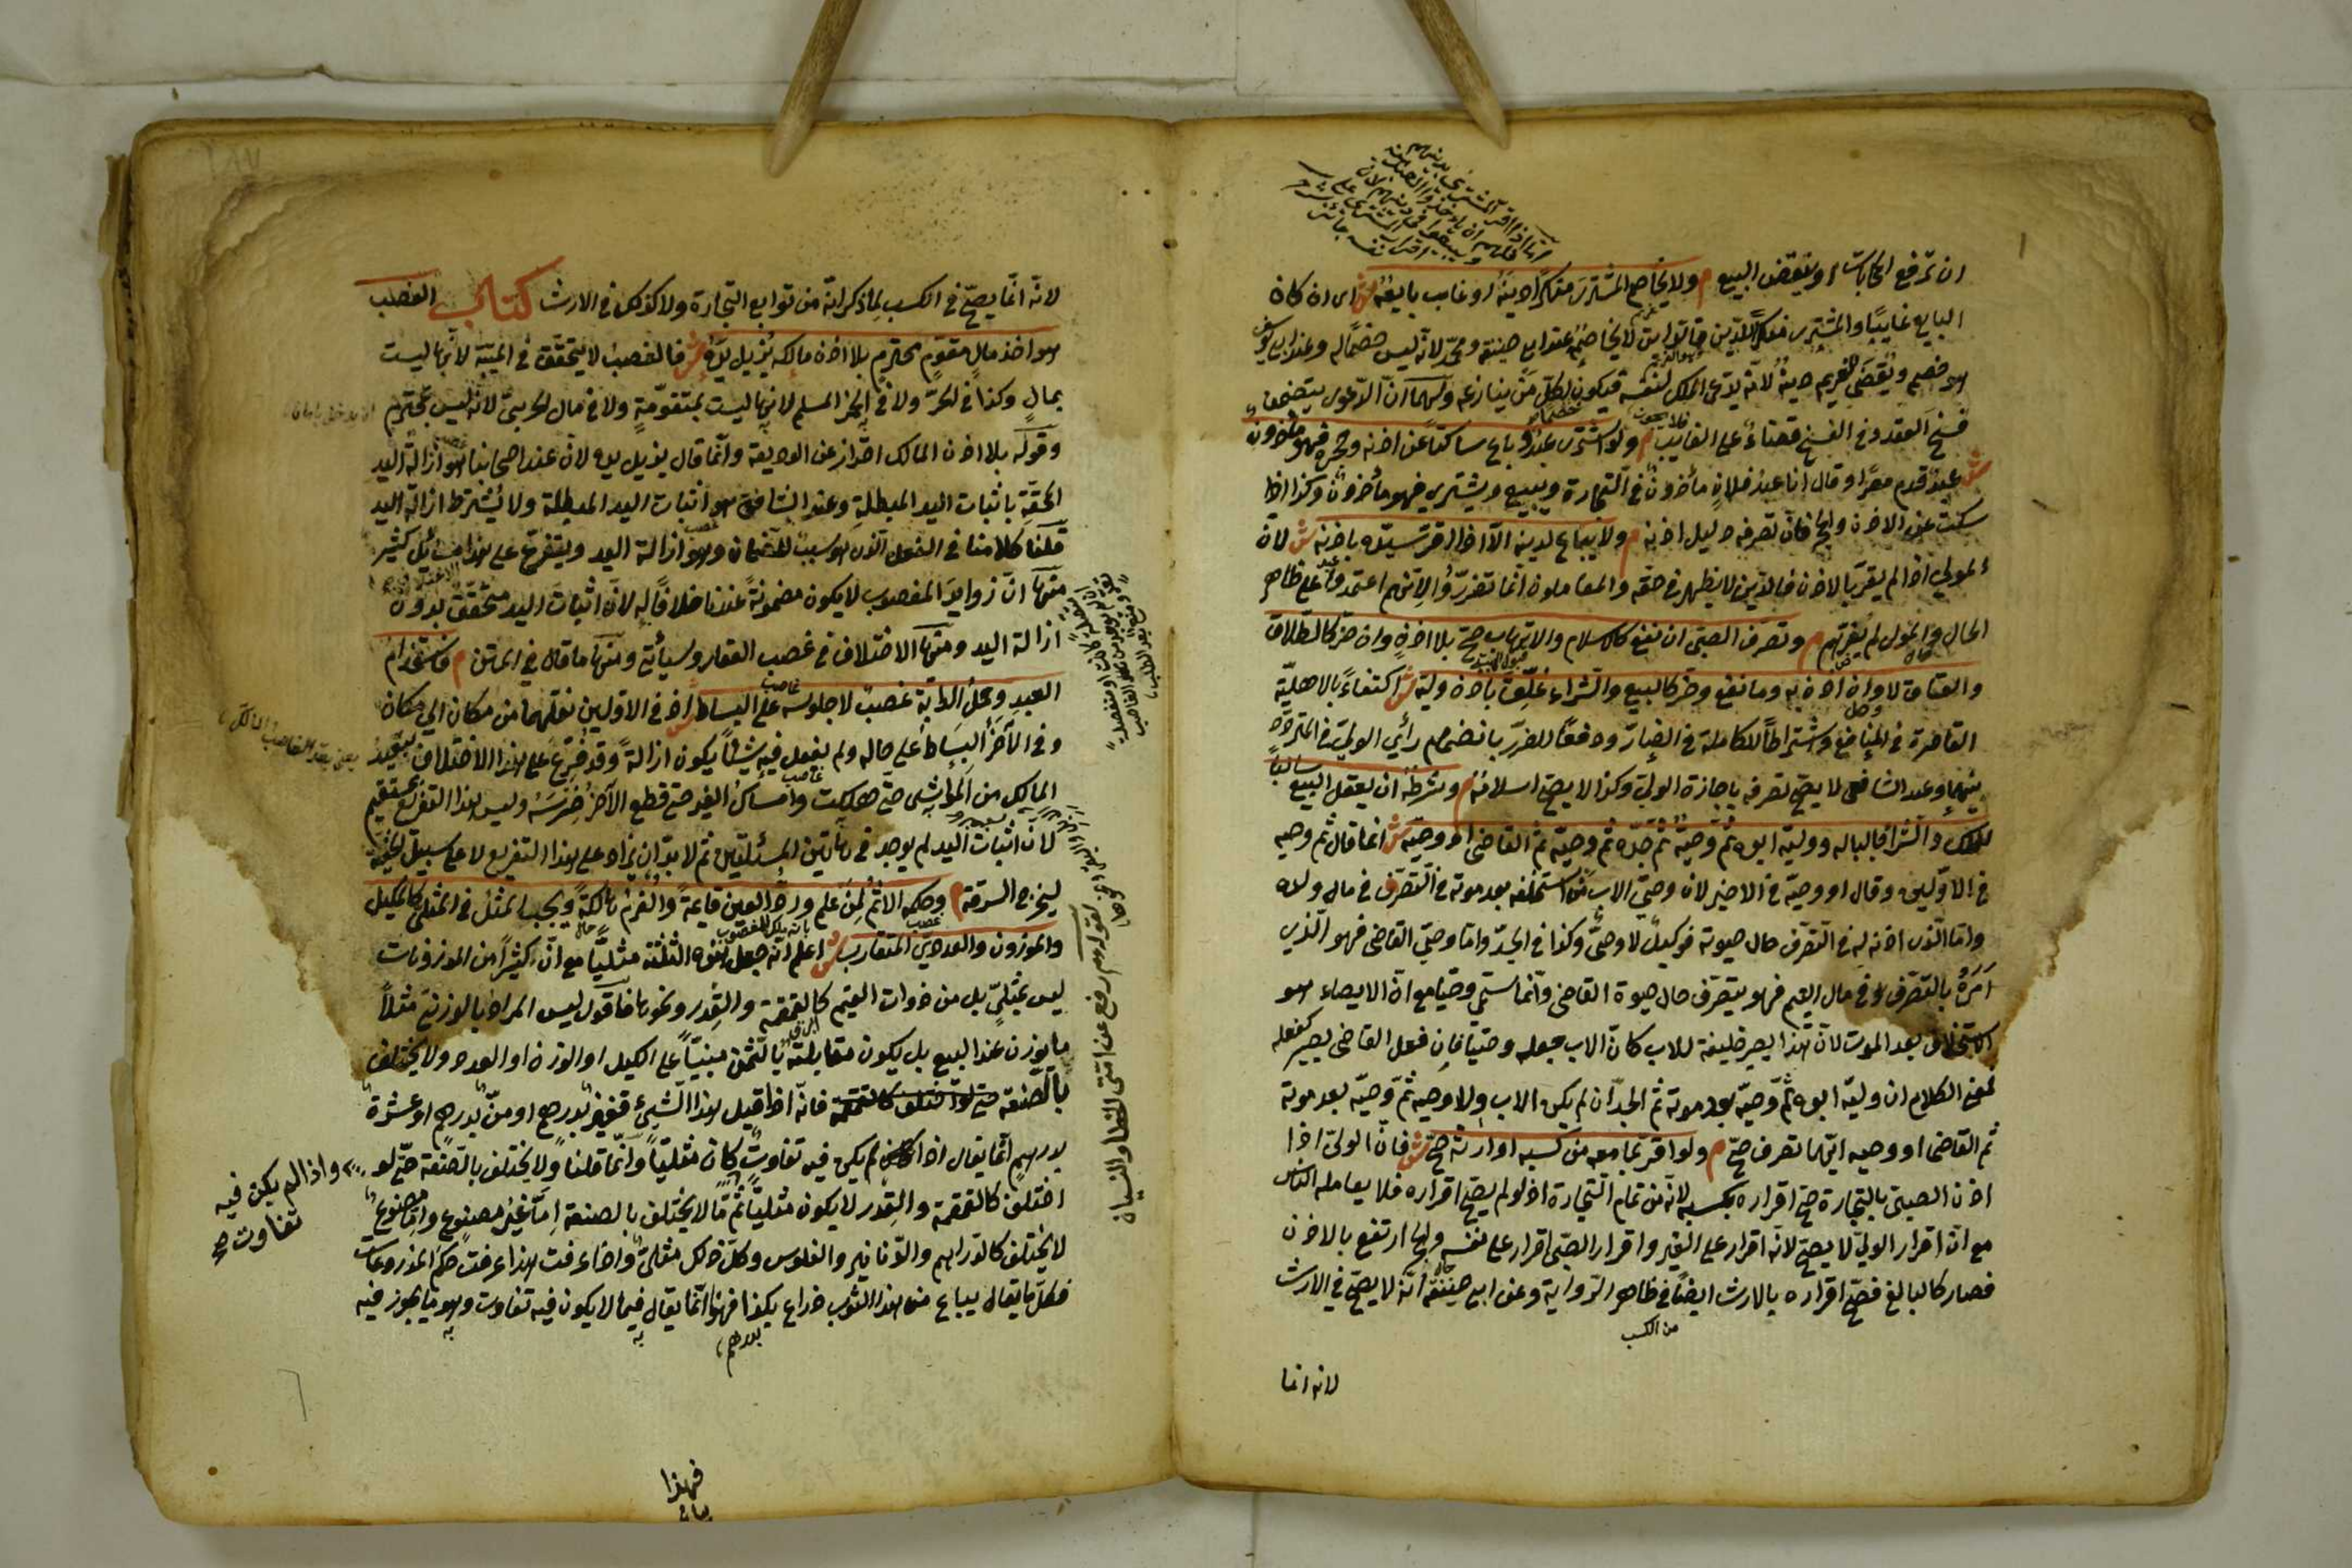 ان ترفع المحابات او ينقض البيع م ولا يخاصم المشتري منكرا دينه لو غاب بايعه ش اي ان كان
البايع غايبا والمشتري منكر للدين فالغرماء لا يخاصمه عند ابي حنيفة ومحمد لانه ليس خصما له وعند ابي يوسف
هو خصم ويقضي للغريم دينه لانه يدعي الملك لنفسه فيكون لكل من ينازعه ولهما ان الدعوى يتضمن
فسخ العقد وفي الفسخ قضاء على الغايب م ولو اشترى عبد وباع ساكتا عن اذنه وحجره فهو مأذون
ش عبد قدم مصرا وقال انا عبد فلان مأذون في التجارة ويبيع ويشتري فهو مأذون وكذا اذا
سكت عن الاذن والحجر فان تصرفه دليل اذنه م ولا يباع لدينه الا اذا اقر سيده باذنه ش لان
المولي اذا لم يقر بالاذن فالدين لا يظهر في حقه والمعاملون انما تضرروا لانهم اعتمدوا على ظاهر
الحال والمولى لم يغرهم م وتصرف الصبي ان نفع كالاسلام والاتهاب صح بلا اذن وان ضر كالطلاق
والعتاق لا وان اذن به وما نفع وضر كالبيع والشراء علق باذن وليه ش اكتفاء بالاهلية
القاصرة في النافع واشتراطا للكاملة في الضار ودفعا للضرر بانضمام رأي الولي في المتردد
بينهما وعند الشافعي لا يصح تصرفه باجازة الولي وكذا لا يصح اسلامه م وشرطه ان يعقل البيع سالبا
للملك والشرا جالبا له ووليه ابوه ثم وصيه ثم جده ثم وصيه ثم القاضي او وصيه ش انما قال ثم وصيه
في الاولين وقال او وصيه في الاخير لان وصي الاب من استخلفه بعد موته في التصرف في مال ولده
واما الذي اذن له في التصرف حال حيوته فوكيل لا وصي وكذا في الجد واما وصي القاضي فهو الذي
امره بالتصرف في مال اليتيم فهو يتصرف حال حيوة القاضي وانما سمي وصيا مع ان الايصاء هو
الاستخلاف بعد الموت لان هذا يصير خليفة للاب كان الاب جعله وصيا فان فعل القاضي يصير كفعله
فمعنى الكلام ان وليه ابوه ثم وصيه بعد موته ثم الجد ان لم يكن الاب ولا وصيه ثم وصيه بعد موته
ثم القاضي او وصيه ايهما تصرف صح م ولو اقر بما معه من كسبه او ارثه صح ش فان الولي اذا
اذن الصبي بالتجارة صح اقراره بكسبه لانه من تمام التجارة اذ لو لم يصح اقراره فلا يعامله الناس
مع ان اقرار الولي لا يصح لانه اقرار على الغير واقرار الصبي اقرار على نفسه والحجر ارتفع بالاذن
فصار كالبالغ فصح اقراره بالارث ايضا في ظاهر الرواية وعن ابي حنيفة انه لا يصح في الارث
من الكسب
لانه انما
لانه انما يصح في الكسب لما ذكر انه من توابع التجارة ولا كذلك في الارث كتاب الغصب
هو اخذ مال متقوم محترم بلا اذن مالكه يزيل يده ش فالغصب لا يتحقق في الميتة لانها ليست
بمال وكذا في الحر ولا في خمر المسلم لانها ليست بمتقومة ولا في مال الحربي لانه ليس بمحترم
وقوله بلا اذن المالك احتراز عن الوديعة وانما قال يزيل يده لان عند اصحابنا هو ازالة اليد
المحقة باثبات اليد المبطلة وعند الشافعي هو اثبات اليد المبطلة ولا يشترط ازالة اليد
قلنا كلامنا في الفعل الذي هو سبب للضمان وهو ازالة اليد ويتفرع على هذا مسائل كثير
منها ان زوايد المغصوب لا يكون مضمونة عندنا خلافا له لان اثبات اليد متحقق بدون
ازالة اليد ومنها الاختلاف في غصب العقار وسيأتي ومنها ما قال في المتن م فاستخدام
العبد وحمل الدابة غصب لا جلوسه على البساط ش اذ في الاولين نقلهما من مكان الي مكان
وفي الآخر البساط على حاله ولم يفعل فيه شيئا يكون ازالة وقد فرع على هذا الاختلاف تبعيد
المالك من المواشي حتى هلكت وامساك الغير حتى قطع الآخر ضرسه وليس هذا التفريع بمستقيم
لان اثبات اليد لم يوجد في هاتين المسئلتين ثم لا بد ان يزاد على هذا التفريع لا على سبيل الخفية
ليخرج السرقة م وحكمه الاثم لمن علم ورد العين قايمة والغرم هالكة ويجب المثل في المثلي كالمكيل
والموزون والعددي المتقارب ش اعلم انه جعل هذه الثلثة مثليا مع ان كثيرا من الموزونات
ليس بمثلي بل من ذوات القيم كالقمقمة والقدر ونحوها فاقول ليس المراد بالوزني مثلا
ما يوزن عند البيع بل يكون مقابلته بالثمن مبنيا على الكيل او الوزن او العدد ولا يختلف
بالصنعة فانه اذا قيل هذا الشيء قفيز بدرهم او من بدرهم او عشرة
بدرهم انما يقال اذا لم يكن فيه تفاوت كان مثليا وانما قلنا ولا يختلف بالصنعة حتى لو
اختلف كالقمقمة والقدر لا يكون مثليا ثم ما لا يختلف بالصنعة اما غير مصنوع واما مصنوع
لا يختلف كالدراهم والدنانير والفلوس وكل ذلك مثلي واذا عرفت هذا عرفت حكم المذروعات
فكل ما يقال يباع من هذا الثوب ذراع بكذا فهذا انما يقال فيما لا يكون فيه تفاوت وهو ما يجوز فيه
بدرهم
واذا لم يكن فيه
تفاوت صح
فهذا